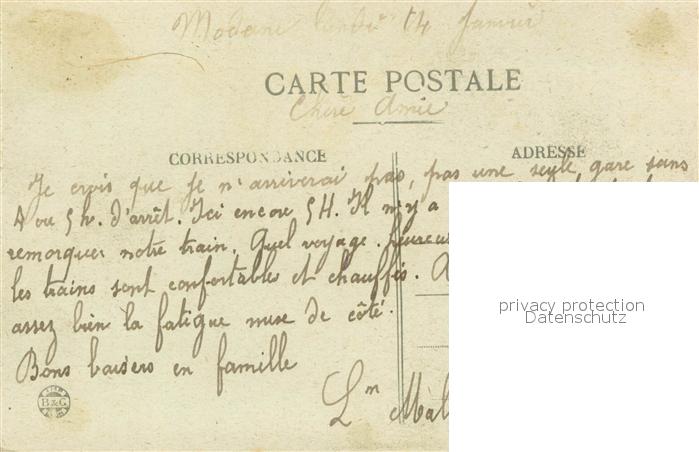 Modane 14 Janvier
CARTE POSTALE
Chère Amie
CORRESPONDANCE
ADRESSE
Je crois que je n'arriverai pas, pas une seule gare sans
4 ou 5 h. d'arrêt. Ici encore 5 H. Il n'y a
remorquer notre train. Quel voyage.
les trains sont confortables et chauffés. A
assez bien la fatigue mise de côté.
Bons baisers en famille
B & G
privacy protection
Datenschutz